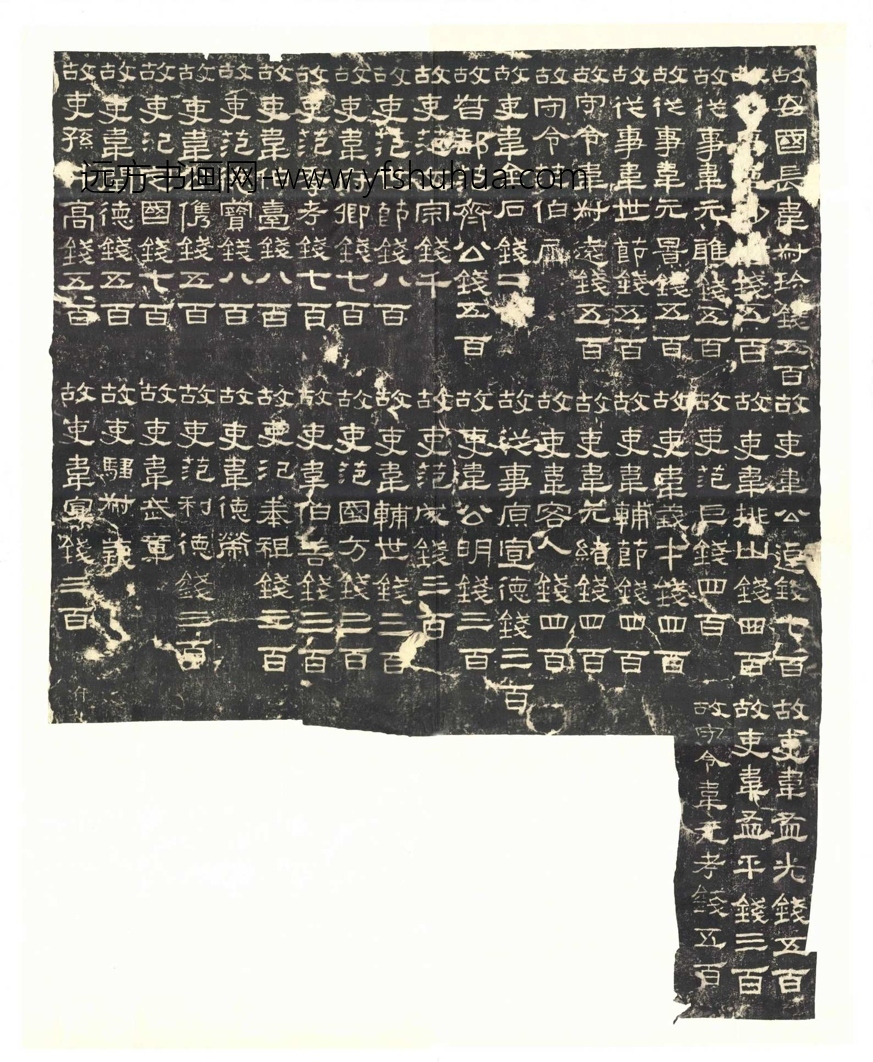 故安國長韋叔珍錢五百
故韋錢五百
故從事韋元雅錢五百
故從事韋元景錢五百
故從事韋世節錢五百
故守令韋叔遠錢五百
故守令范伯犀
故吏韋金石錢二百
故督郵范齊公錢五百
故吏范文宗錢千
故吏范世節錢八百
故吏韋府卿錢七百
故吏范季考錢七百
故吏韋伯臺錢八百
故吏范德寶錢八百
故吏韋公儁錢五百
故吏氾定國錢七百
故吏韋閏德錢五百
故吏孫升高錢五百
故吏韋公逴錢七百
故吏韋排山錢四百
故吏范巨錢四百
故吏韋義才錢四百
故吏韋輔節錢四百
故吏韋元緒錢四百
故吏韋客人錢四百
故從事原宣德錢三百
故吏韋公明錢三百
故吏范成錢三百
故吏韋輔世錢三百
故吏范國方錢三百
故吏韋伯善錢三百
故吏氾奉祖錢三百
故吏韋德榮
故吏范利德錢三百
故吏韋武章
故吏騶叔義
故吏韋宣錢三百
故吏韋孟光錢五百
故吏韋孟平錢三百
故守令韋元考錢五百
远方书画网-www.yfshuhua.com